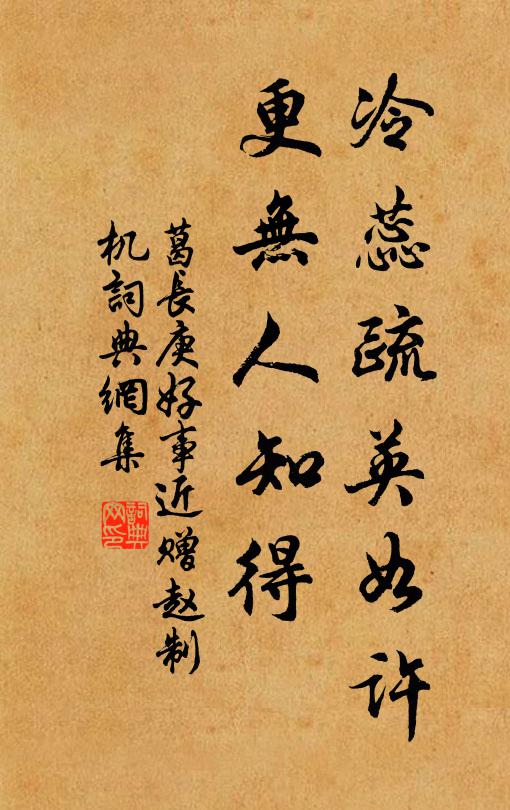 冷蕊疏英如许
更無人知得
葛長庚好事近赠赵制
机詞典網集
詞典网印